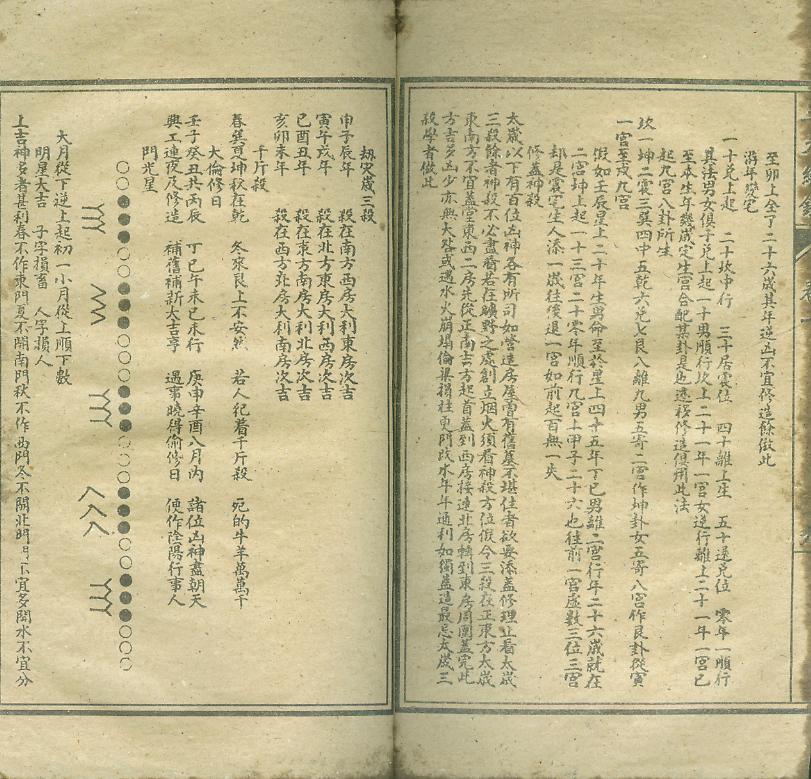 至卯上全了二十六歲其年逆凶不宜修造餘倣此
游年變宅
一十兌上起 二十坎中行 三十居震位 四十離上坐 五十還兌位 零年一順行
其法男女俱于兌上起一十男順行坎上二十一年一宮女逆行離上二十一年一宮已
至本生年幾歲定生宮合配某卦是也遷移修造俱用此法
起九宮八卦所生
坎一坤二震三巽四中五乾六兌七艮八離九男五寄二宮作坤卦女五寄八宮作艮卦從寅
一宮至戌九宮
假如壬辰星上二十年生男命至於星上四十五年丁巳男離二宮行年二十六歲就在
二宮坤上起一十三宮二十零年順行九宮上甲子二十六也往前一宮虛數三位三宮
却是震宅生人添一歲往後退一宮如前起百無一失
修蓋神殺
太歲以下有百位凶神各有所司如營造房屋當有舊基不堪住者欲要添蓋修理止看太歲
三殺餘者神殺不必盡看若在曠野之處創立烟火須看神殺方位假令三殺在正東方太歲
東南方不宜蓋堂東西二房先從正南吉方起首蓋到西房接連北房轉到東房周圍蓋完此
方吉多凶少亦無大咎或遇水火崩塌偷梁換柱更門改水年年通利如獨蓋造最忌太歲三
殺學者倣此
刼灾歲三殺
申子辰年 殺在南方西房大利東房次吉
寅午戌年 殺在北方東房大利西房次吉
巳酉丑年 殺在東方南房大利北房次吉
亥卯未年 殺在西方北房大利南房次吉
千斤殺
春巽夏坤秋在乾 冬來艮上不安然 若人犯着千斤殺 死的牛羊萬萬千
大偷修日
壬子癸丑共丙辰 丁巳午未己未行 庚申辛酉八月內 諸位凶神盡朝天
興工連夜及修造 補舊補新大吉亨 遇事曉得偷修日 便作陰陽行事人
門光星
大月從下逆上起初一小月從上順下數
明星大吉 子字損畜 人字損人
上吉神多者甚利春不作東門夏不開南門秋不作西門冬不開北門門下宜多開水不宜分